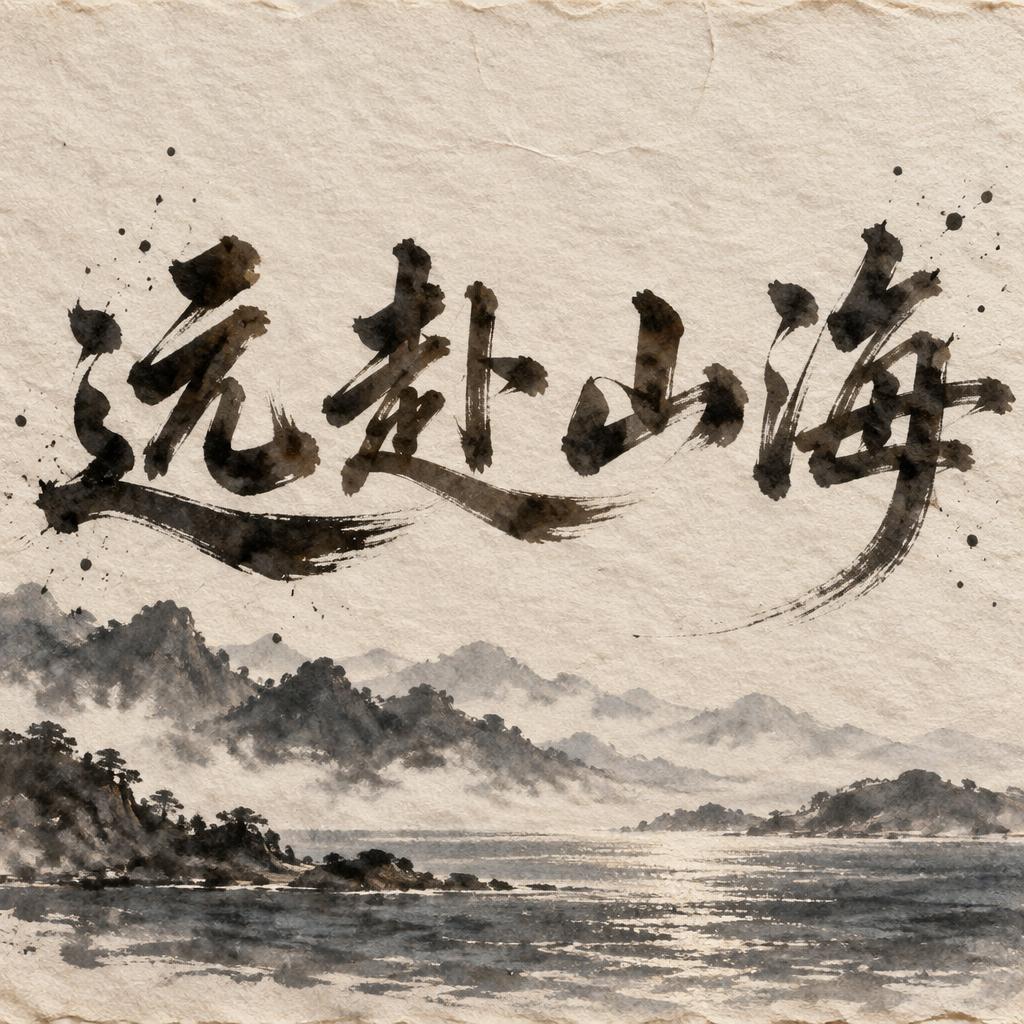 远赴山海